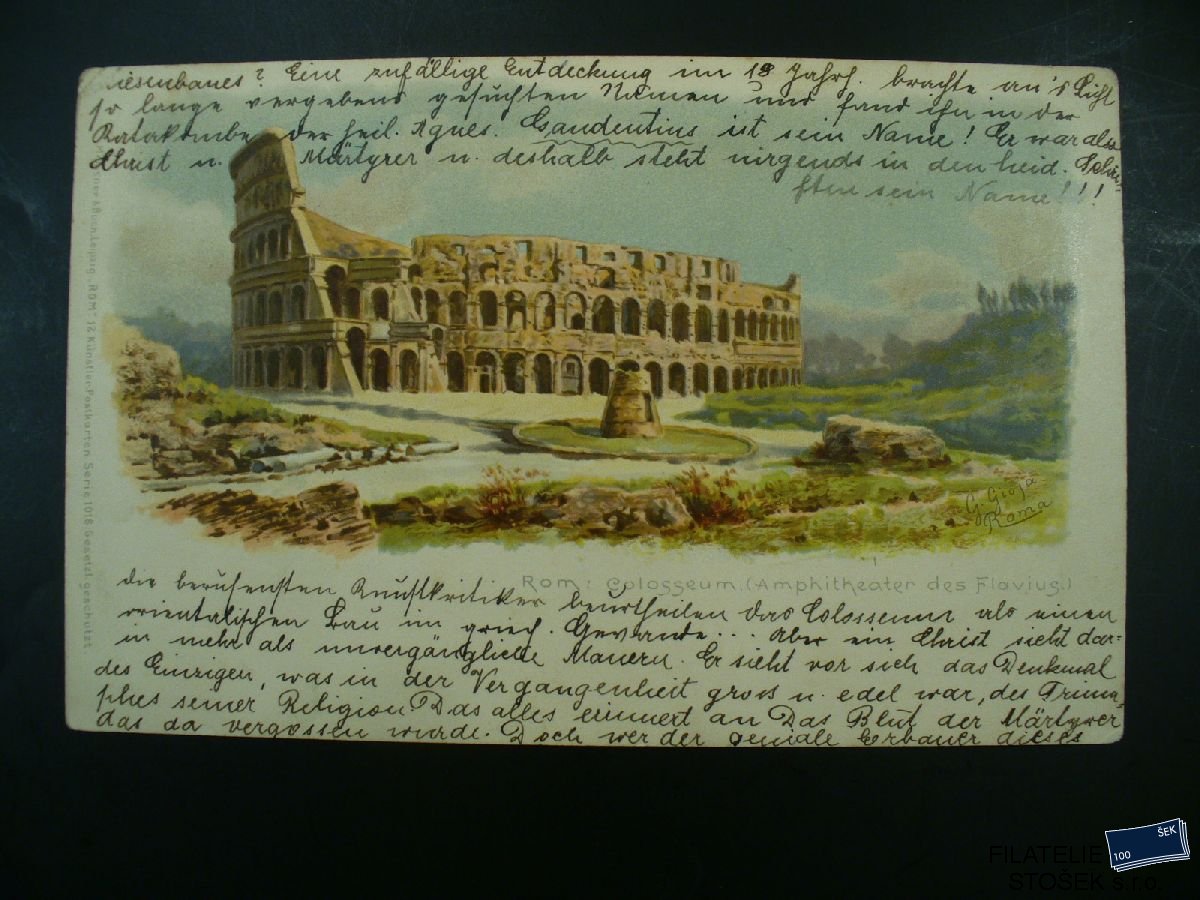 Riesenbaues? Eine zufällige Entdeckung im 18 Jahrh. brachte an's Licht
so lange vergebens gesuchten Namen und fand ihn in der
Katakombe der heil. Agnes. Gaudentius ist sein Name! Er war also
Christ u. Märtyrer u. deshalb steht nirgends in den heid. Schri-
ften sein Name!!!
Leipzig. ROM. 12 Künstler-Postkarten. Serie 1016. Gesetzl. geschützt
G. Gioja
Roma
Rom: Colosseum. (Amphitheater des Flavius.)
die berufensten Kunstkritiker beurtheilen das Colosseum als einen
orientalischen Bau im griech. Gewande... Aber ein Christ sieht dar=
in mehr als unvergängliche Mauern. Er sieht vor sich das Denkmal
des Einzigen, was in der Vergangenheit gross u. edel war, des Trium
phes seiner Religion Das alles erinnert an Das Blut der Märtyrer
das da vergossen wurde. Doch wer der geniale Erbauer dieses
FILATELIE
STOŠEK s.r.o.
100
ŠEK